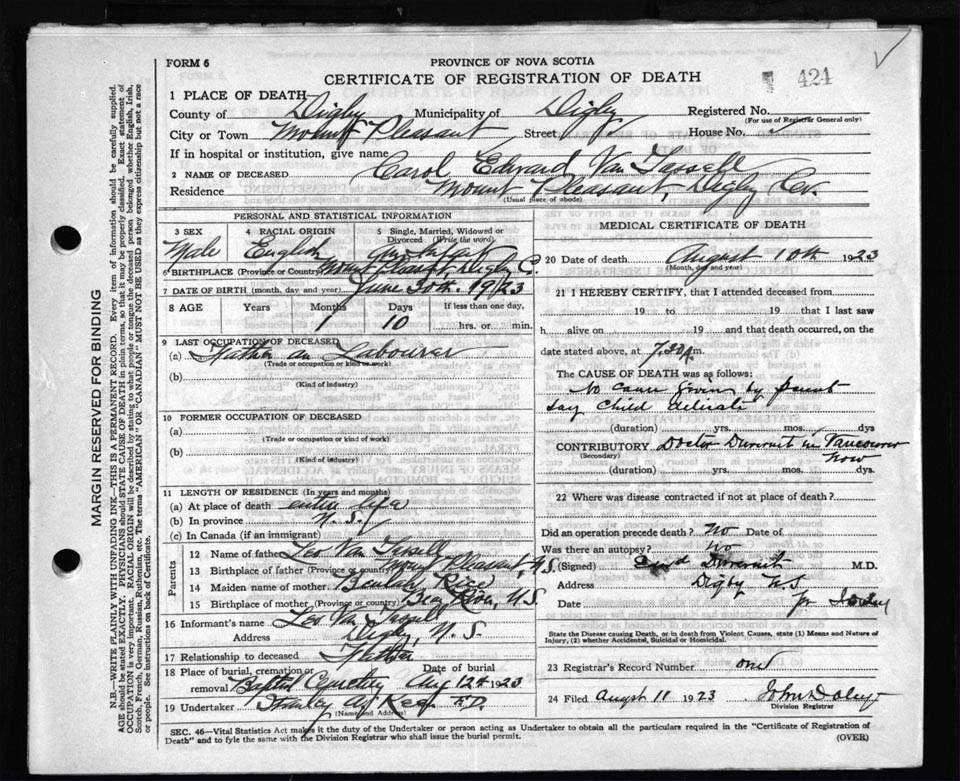 FORM 6
PROVINCE OF NOVA SCOTIA
CERTIFICATE OF REGISTRATION OF DEATH
424
1 PLACE OF DEATH
County of Digby Municipality of Digby Registered No.
(For use of Registrar General only)
City or Town Mount Pleasant Street House No.
If in hospital or institution, give name
2 NAME OF DECEASED Carol Edward Van Tassell
Residence Mount Pleasant, Digby Co.
(Usual place of abode)
PERSONAL AND STATISTICAL INFORMATION
3 SEX
Male
4 RACIAL ORIGIN
English
5 Single, Married, Widowed or Divorced (Write the word)
Infant
6 BIRTHPLACE (Province or Country) Mount Pleasant, Digby C.
7 DATE OF BIRTH (month, day and year) June 30th. 1923
8 AGE Years Months Days If less than one day,
1 10 hrs. or min.
9 LAST OCCUPATION OF DECEASED
(a) Father an Labourer
(Trade or occupation or kind or work)
(b)
(Kind of industry)
10 FORMER OCCUPATION OF DECEASED
(a)
(Trade or occupation or kind of work)
(b)
(Kind of industry)
11 LENGTH OF RESIDENCE (In years and months)
(a) At place of death entire life
(b) In province N. S.
(c) In Canada (if an immigrant)
Parents
12 Name of father Leo Van Tassell
13 Birthplace of father (Province or country) Mount Pleasant, N.S.
14 Maiden name of mother Beulah Rice
15 Birthplace of mother (Province or country) Bear River, N.S.
16 Informant's name Leo Van Tassell
Address Digby, N. S.
17 Relationship to deceased Father
18 Place of burial, cremation or removal Baptist Cemetery Date of burial Aug 12th 1923
19 Undertaker Stanley
(Name and Address)
MEDICAL CERTIFICATE OF DEATH
20 Date of death August 10th 1923
(Month, day and year)
21 I HEREBY CERTIFY, that I attended deceased from
19 to 19 that I last saw
h alive on 19 and that death occurred, on
date stated above, at 7.30 A m.
The CAUSE OF DEATH was as follows:
No cause given by parent
say child delicate
(duration) yrs. mos. dys
CONTRIBUTORY Doctor in Vancouver
(Secondary) now
(duration) yrs. mos. dys.
22 Where was disease contracted if not at place of death?
Did an operation precede death? No Date of
Was there an autopsy? No
(Signed) M.D.
Address Digby N.S
Date
State the Disease causing Death, or in death from Violent Causes, state (1) Means and Nature of
Injury, (2) whether Accidental, Suicidal or Homicidal.
23 Registrar's Record Number one
24 Filed August 11 1923 John Daley
Division Registrar
SEC. 46—Vital Statistics Act makes it the duty of the Undertaker or person acting as Undertaker to obtain all the particulars required in the "Certificate of Registration of
Death" and to fyle the same with the Division Registrar who shall issue the burial permit. (OVER)
MARGIN RESERVED FOR BINDING
N.B.—WRITE PLAINLY WITH UNFADING INK—THIS IS A PERMANENT RECORD. Every item of information should be carefully supplied.
AGE should be stated EXACTLY. PHYSICIANS should STATE CAUSE OF DEATH in plain terms, so that it may be properly classified. Exact statement of
OCCUPATION is very important. RACIAL ORIGIN will be described by stating to what people or tongue the deceased person belonged whether English, Irish,
Scotch, French, German, Russian, Ruthenian, etc. The terms "AMERICAN" OR "CANADIAN" MUST NOT BE USED as they express citizenship but not a race
or people. See instructions on back of Certificate.